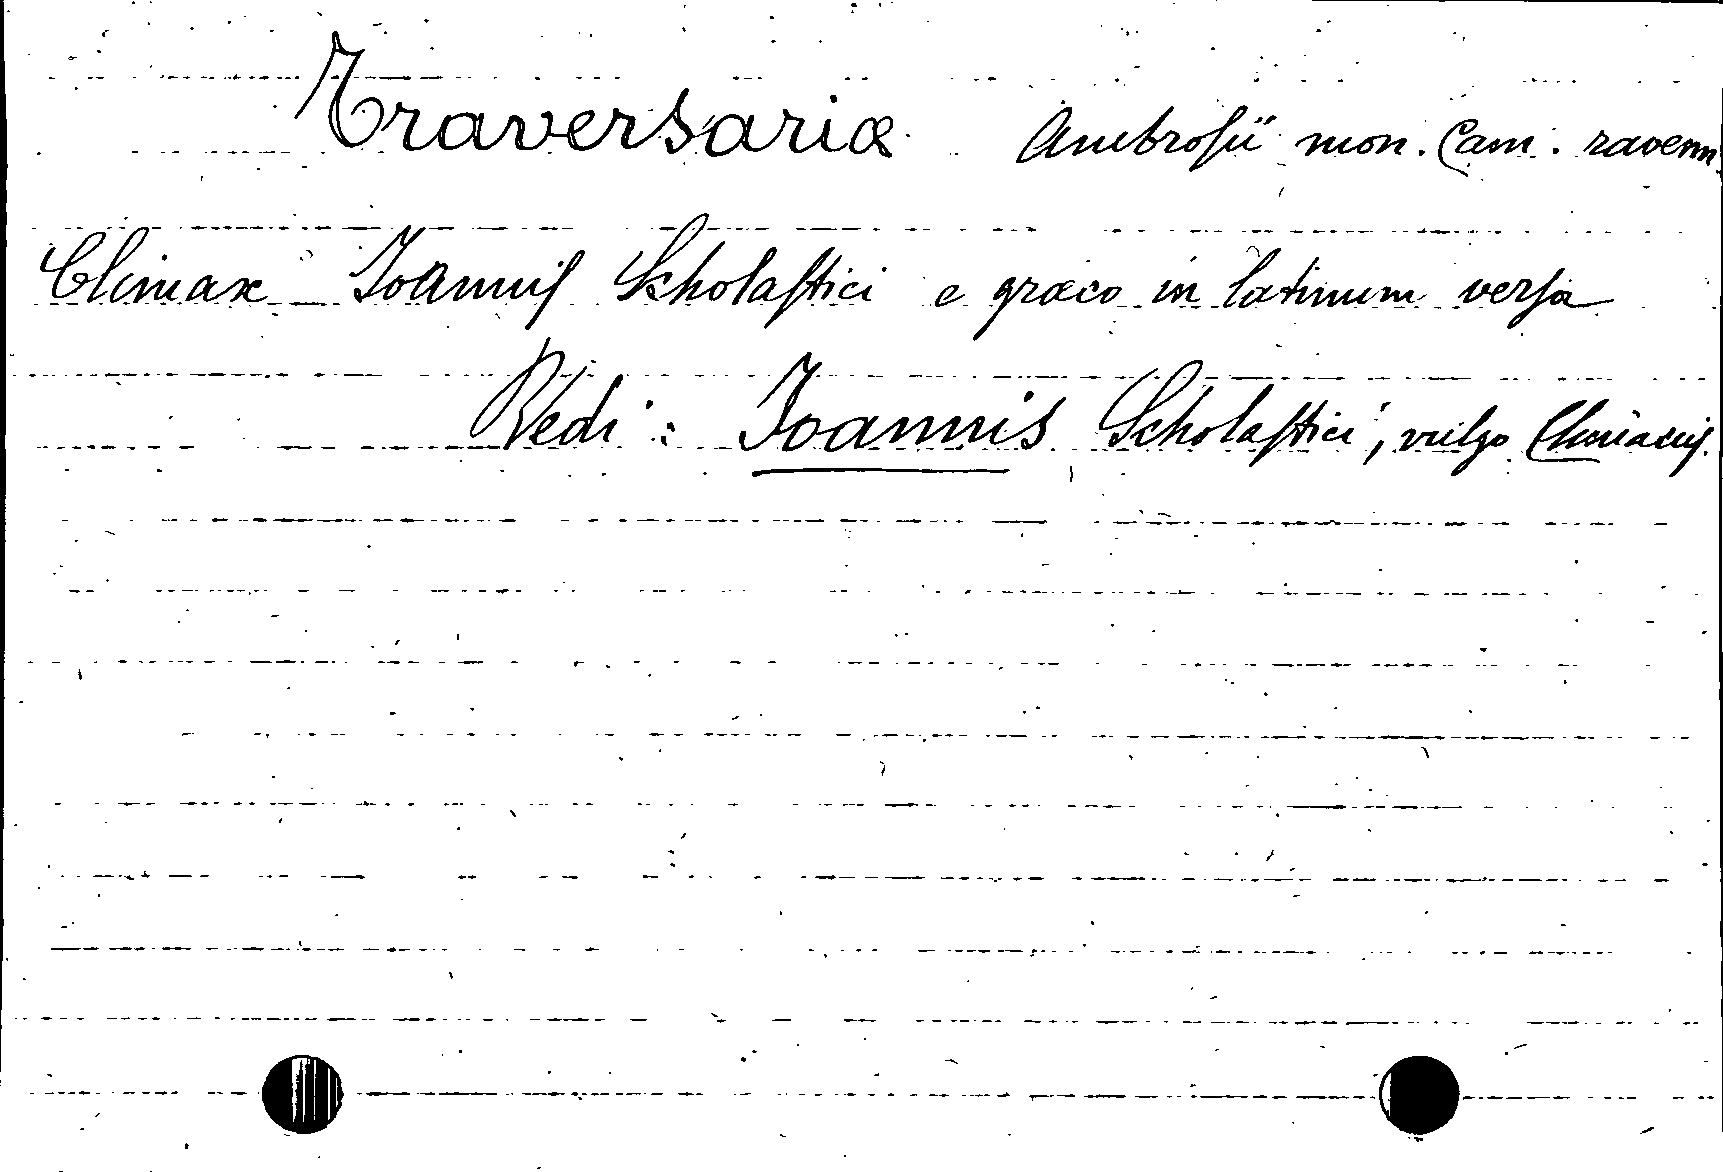 Traversariæ Ambrosii mon. Cam. ravenn.
Climax Ioannis Scholastici e græco in latinum versa
Vedi: Ioannis Scholastici, vulgo Climacus.